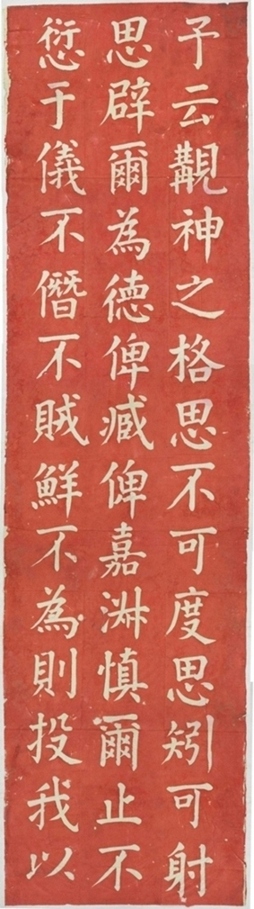 予云觏神之格思不可度思矧可射
思辟爾為德俾臧俾嘉淋慎爾止不
愆于儀不僭不賊鮮不為則投我以